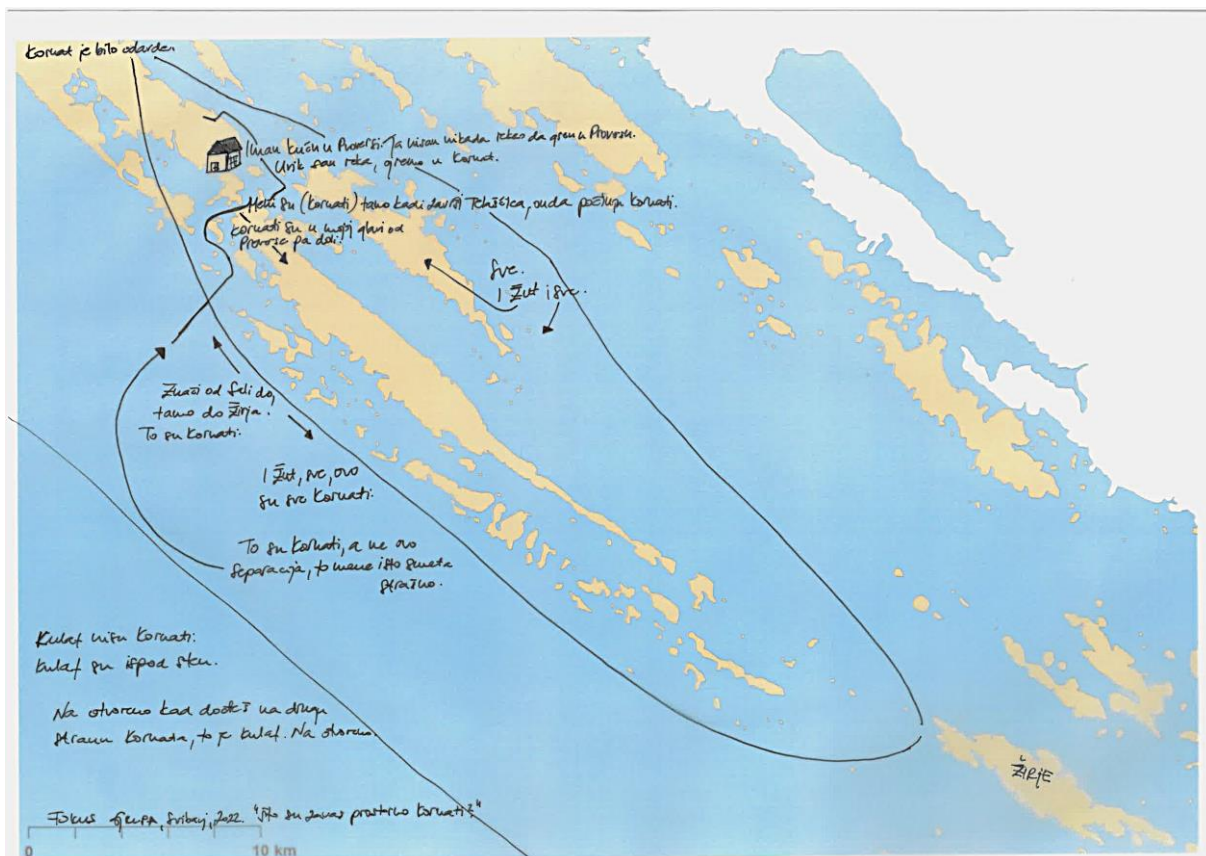 Kornat je bilo odarden
Iman kuću u Proversi. Ja nisan nikada rekao da gren u Proversu.
Uvik san reka, gremo u Kornat.
Meni su (Kornati) tamo kadi završi Telašćica, onda počinju Kornati.
Kornati su u mojoj glavi od
Proverse pa doli.
Sve.
I Žut i sve.
Znači od Sali do
tamo do Žirja.
To su Kornati.
I Žut, sve, ovo
su sve Kornati.
To su Kornati, a ne ovo
separacija, to mene isto smeta
strašno.
Kulaf nisu Kornati.
Kulaf su ispod sten.
Na otvoreno kad dođeš na drugu
stranu Kornata, to je kulaf. Na otvoreno.
ŽIRJE
Fokus grupa, svibanj, 2022. "Što su za vas prostorno Kornati?"
0 10 km